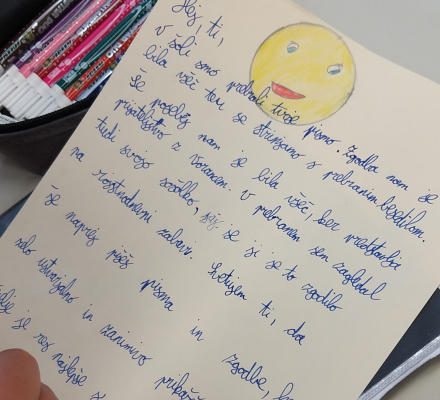 Hej, ti,
v šoli smo prebrali tvoje pismo. Zgodba nam je
bila všeč ter se strinjamo s prebranim besedilom.
Še posebej nam je bila všeč, ker predstavlja
prijateljstvo z Korancem. V prebranem sem zagledal
tudi svojo sošolko, saj se ji je to zgodilo
na rojstnodnevni zabavi. Svetujem ti, da
še naprej pišeš pisma in zgodbe,
zelo ustvarjalno in zanimivo
je res najlepše